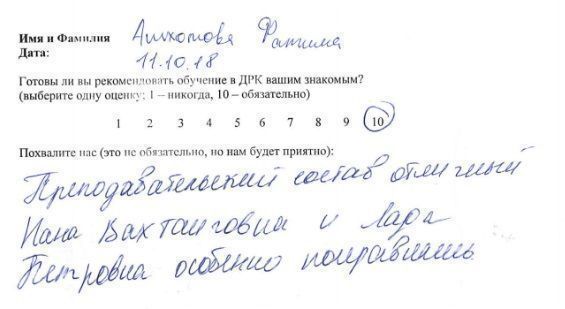 Имя и Фамилия Фатима
Дата: 11.10.18
Готовы ли вы рекомендовать обучение в ДРК вашим знакомым?
(выберите одну оценку: 1 – никогда, 10 – обязательно)
1 2 3 4 5 6 7 8 9 10
Похвалите нас (это не обязательно, но нам будет приятно):
Преподавательский состав отличный
Нана Вахтанговна и Лада
Петровна особенно понравились